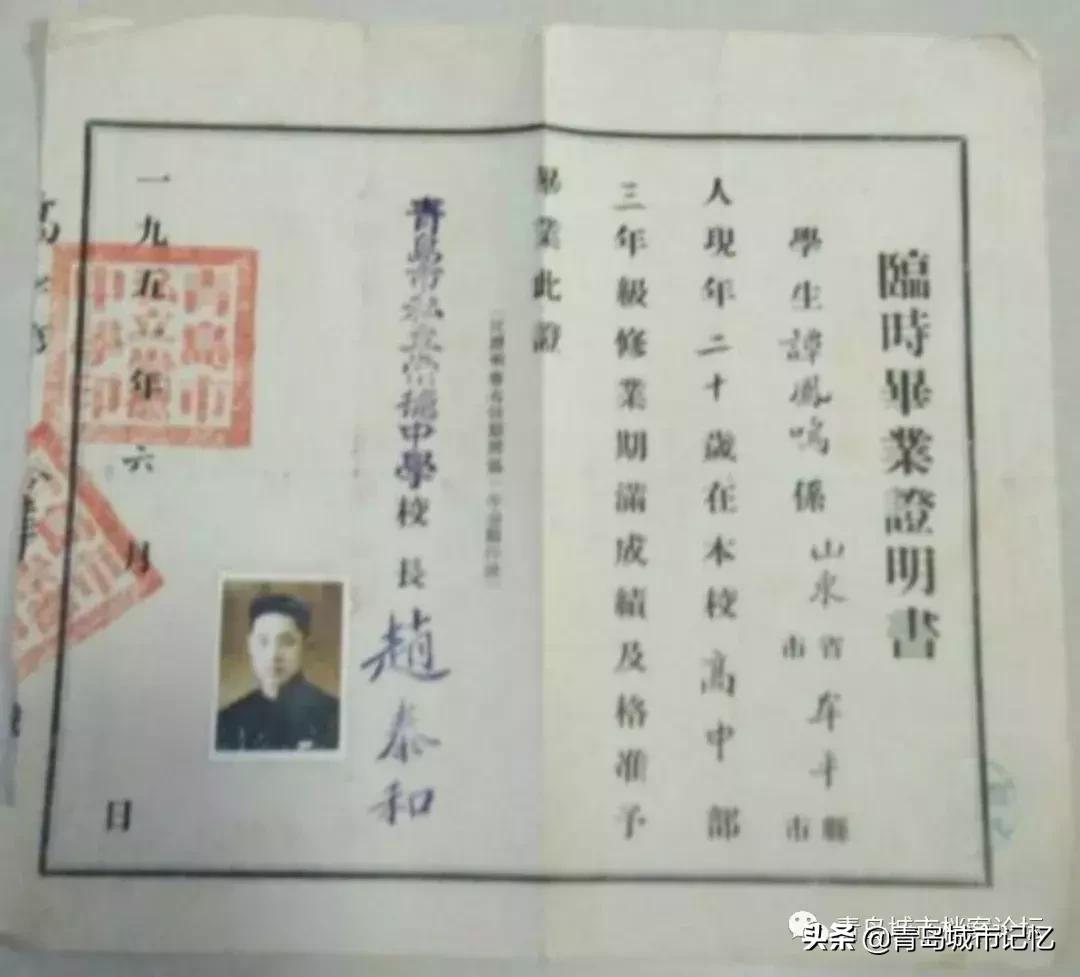 臨時畢業證明書
學生譚鳳鳴係山東省市牟平縣市
人現年二十歲在本校高中部
三年級修業期滿成績及格准予
畢業此證
青島市私立崇德中學校長趙泰和
一九五年六月日
青島市
青岛城市档案论坛
头条 @青岛城市记忆